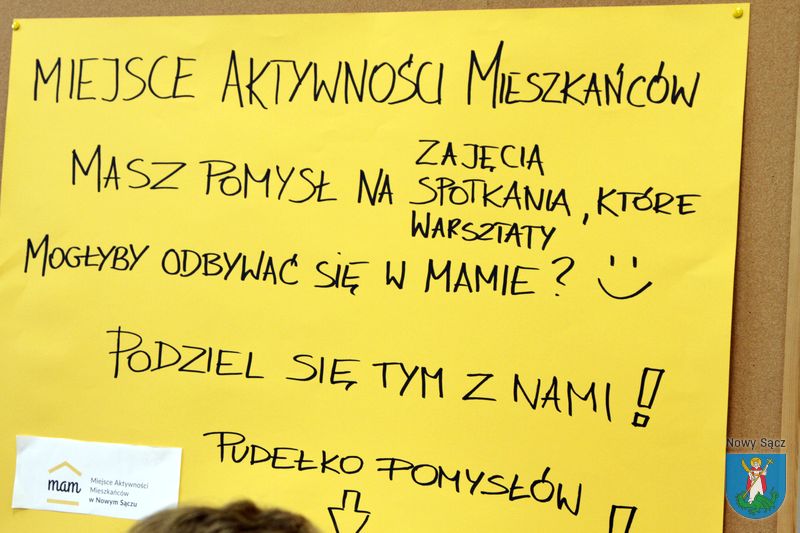 MIEJSCE AKTYWNOŚCI MIESZKAŃCÓW
ZAJĘCIA
MASZ POMYSŁ NA SPOTKANIA, KTÓRE
WARSZTATY
MOGŁYBY ODBYWAĆ SIĘ W MAMIE? :)
PODZIEL SIĘ TYM Z NAMI!
PUDEŁKO POMYSŁÓW!
mam
Miejsce Aktywności
Mieszkańców
w Nowym Sączu
Nowy Sącz